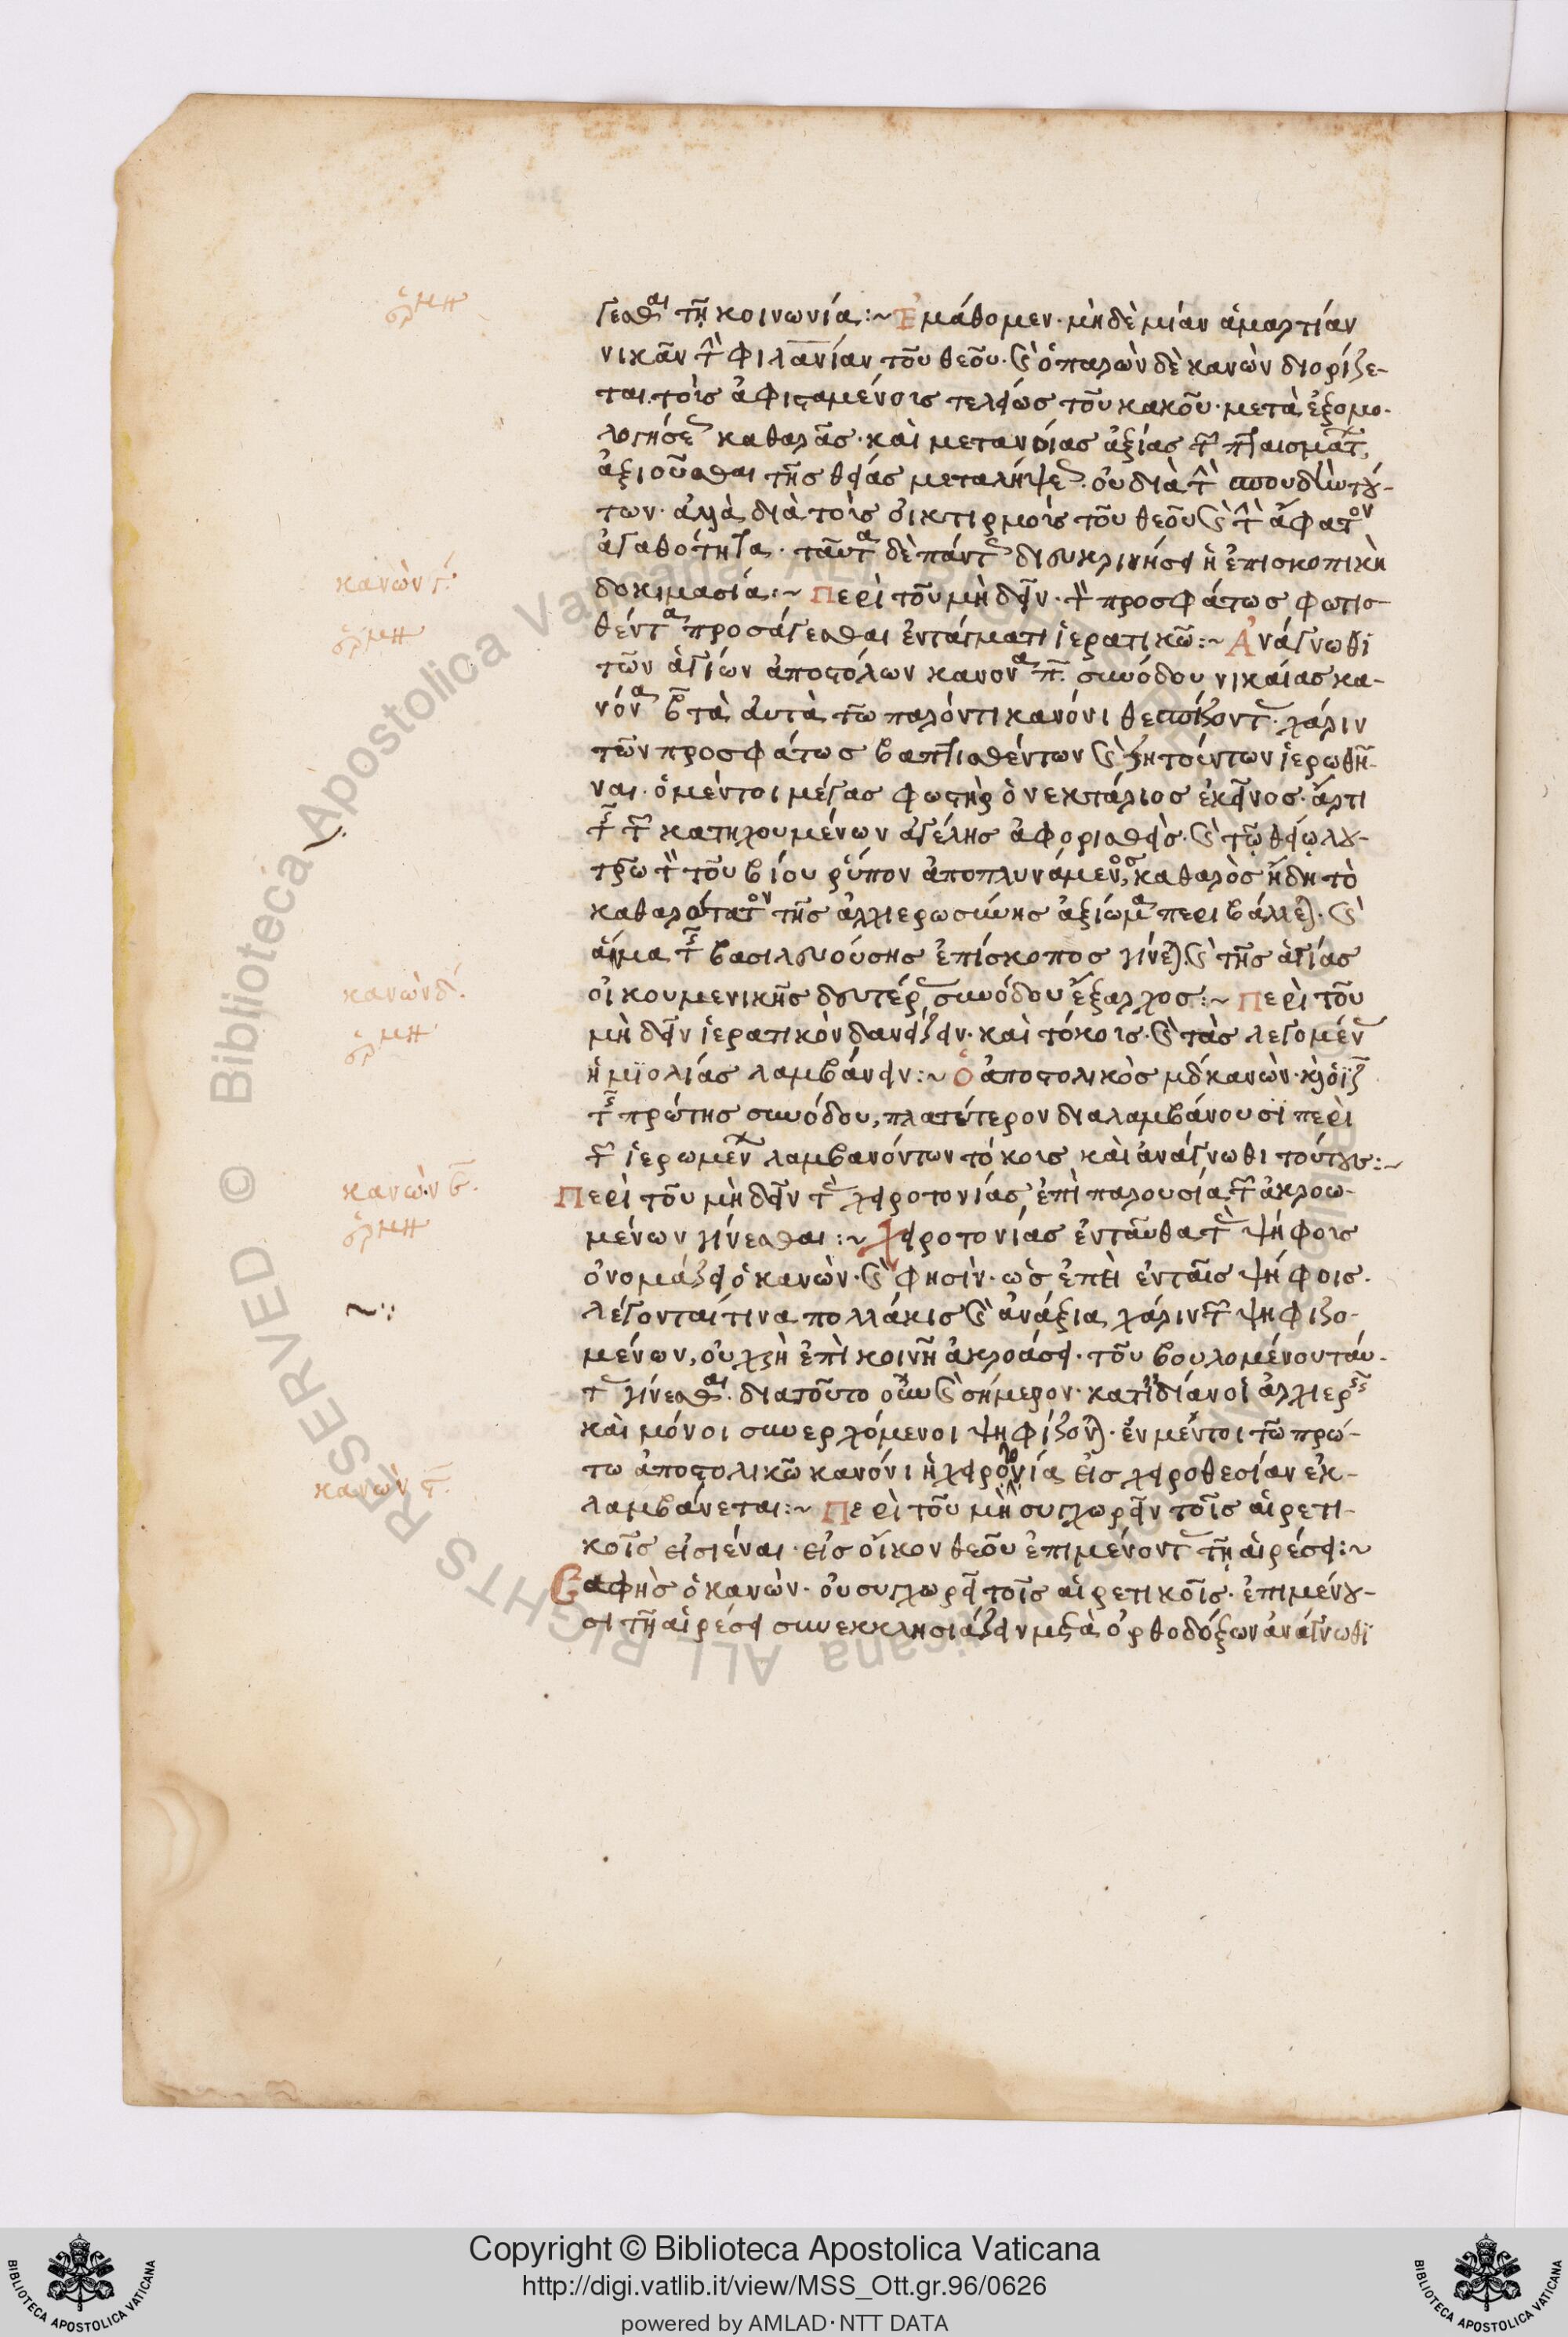 ἑρμη
γεσθαι τῆ κοινωνία:~ Ἐμάθομεν· μὴ δὲ μίαν ἁμαρτίαν
νικᾶν τὴν φιλανίαν τοῦ θεοῦ· καὶ ὁ παρὼν δὲ κανὼν διορίζε-
ται τοῖς ἀφισταμένοις τελείως τοῦ κακοῦ· μετὰ ἐξομο-
λογήσεως καθαρᾶς· καὶ μετανοίας ἀξίας τῶν πταισμάτων
ἀξιοῦσθαι τῆς θείας μεταλήψεως· οὐ διὰ τὴν
των· ἀλλὰ διὰ τοῖς οἰκτιρμοῖς τοῦ θεοῦ καὶ τὴν ἄφατον
ἀγαθότητα· ταῦτα δὲ πάντα διευκρινήσει ἡ ἐπισκοπικὴ
κανὼν γ´.
δοκιμασία:~ Περὶ τοῦ μὴ δεῖν· τὸν προσφάτως φωτισ-
ἑρμη
θέντα προσάγεσθαι ἐντάγματι ἱερατικῶ:~ Ἀνάγνωθι
τῶν ἁγίων ἀποστόλων κανονα π. συνόδου νικαίας κα-
νόνα β τὰ αὐτὰ τῶ παρόντι κανόνι θεσπίζοντα· χάριν
τῶν προσφάτως βαπτισθέντων καὶ ζητούντων ἱερωθῆ-
ναι· ὁ μέντοι μέγας φωστὴρ ὁ νεκτάριος ἐκεῖνος· ἄρτι
τῆς τῶν κατηχουμένων ἀγέλης ἀφορισθεὶς· καὶ τῶ θείω λου-
τρῶ τὸν τοῦ βίου ῥύπον ἀποπλυνάμενος, καθαρὸς ἤδη τὸ
καθαρώτατον τῆς ἀρχιερωσύνης ἀξίωμα περιβάλλεται· καὶ
ἅμα τῆς βασιλευούσης ἐπίσκοπος γίνεται καὶ τῆς ἁγίας
κανὼν δ´.
οἰκουμενικῆς δευτέρας συνόδου ἔξαρχος:~ Περὶ τοῦ
ἑρμη
μὴ δεῖν ἱερατικὸν δανείζειν· καὶ τόκοις· καὶ τὰς λεγομένας
ἡμϊολίας λαμβάνειν:~ Ὁ ἀποστολικὸς μδ κανὼν· καὶ ὁ ϊζ
τῆς πρώτης συνόδου, πλατύτερον διαλαμβάνουσϊ περὶ
τῶν ἱερωμένων λαμβανόντων τόκοις καὶ ἀνάγνωθι τούτους:~
κανὼν ε.
Περὶ τοῦ μὴ δεῖν τὰς χειροτονίας, ἐπὶ παρουσία τῶν ἀκροω-
ἑρμη
μένων γίνεσθαι:~ Χειροτονίας ἐνταῦθα τὰς ψήφοις
ὀνομάζει ὁ κανὼν· καὶ φησὶν· ὡς ἐπεὶ ἐν ταῖς ψήφοις·
λέγονταί τινα πολλάκις καὶ ἀνάξια χάριν τῶν ψηφιζο-
μένων, οὐ χρὴ ἐπὶ κοινῆ ἀκροάσει· τοῦ βουλομένου ταύ-
τας γίνεσθαι· διατοῦτο οὖν καὶ σήμερον· κατϊδίαν οἱ ἀρχιερεῖς
καὶ μόνοι συνερχόμενοι ψηφίζονται· ἐν μέντοι τῶ πρώ-
τω ἀποστολικῶ κανόνι ἡ χειροτονία εἰς χειροθεσίαν ἐκ-
κανὼν ϛ.
λαμβάνεται:~ Περὶ τοῦ μὴ συγχωρεῖν τοῖς αἱρετι-
κοῖς εἰσιέναι· εἰς οἶκον θεοῦ ἐπιμένοντας τῆ αἱρέσει:~
Σαφὴς ὁ κανὼν· οὐ συγχωρεῖ τοῖς αἱρετικοῖς· ἐπιμένου-
σι τῆ αἱρέσει συνεκκλησιάζειν μετὰ ὀρθοδόξων ἀνάγνωθϊ
Copyright © Biblioteca Apostolica Vaticana
http://digi.vatlib.it/view/MSS_Ott.gr.96/0626
powered by AMLAD·NTT DATA
BIBLIOTECA APOSTOLICA VATICANA
BIBLIOTECA APOSTOLICA VATICANA
Biblioteca Apostolica Vaticana ALL RIGHTS RESERVED ©